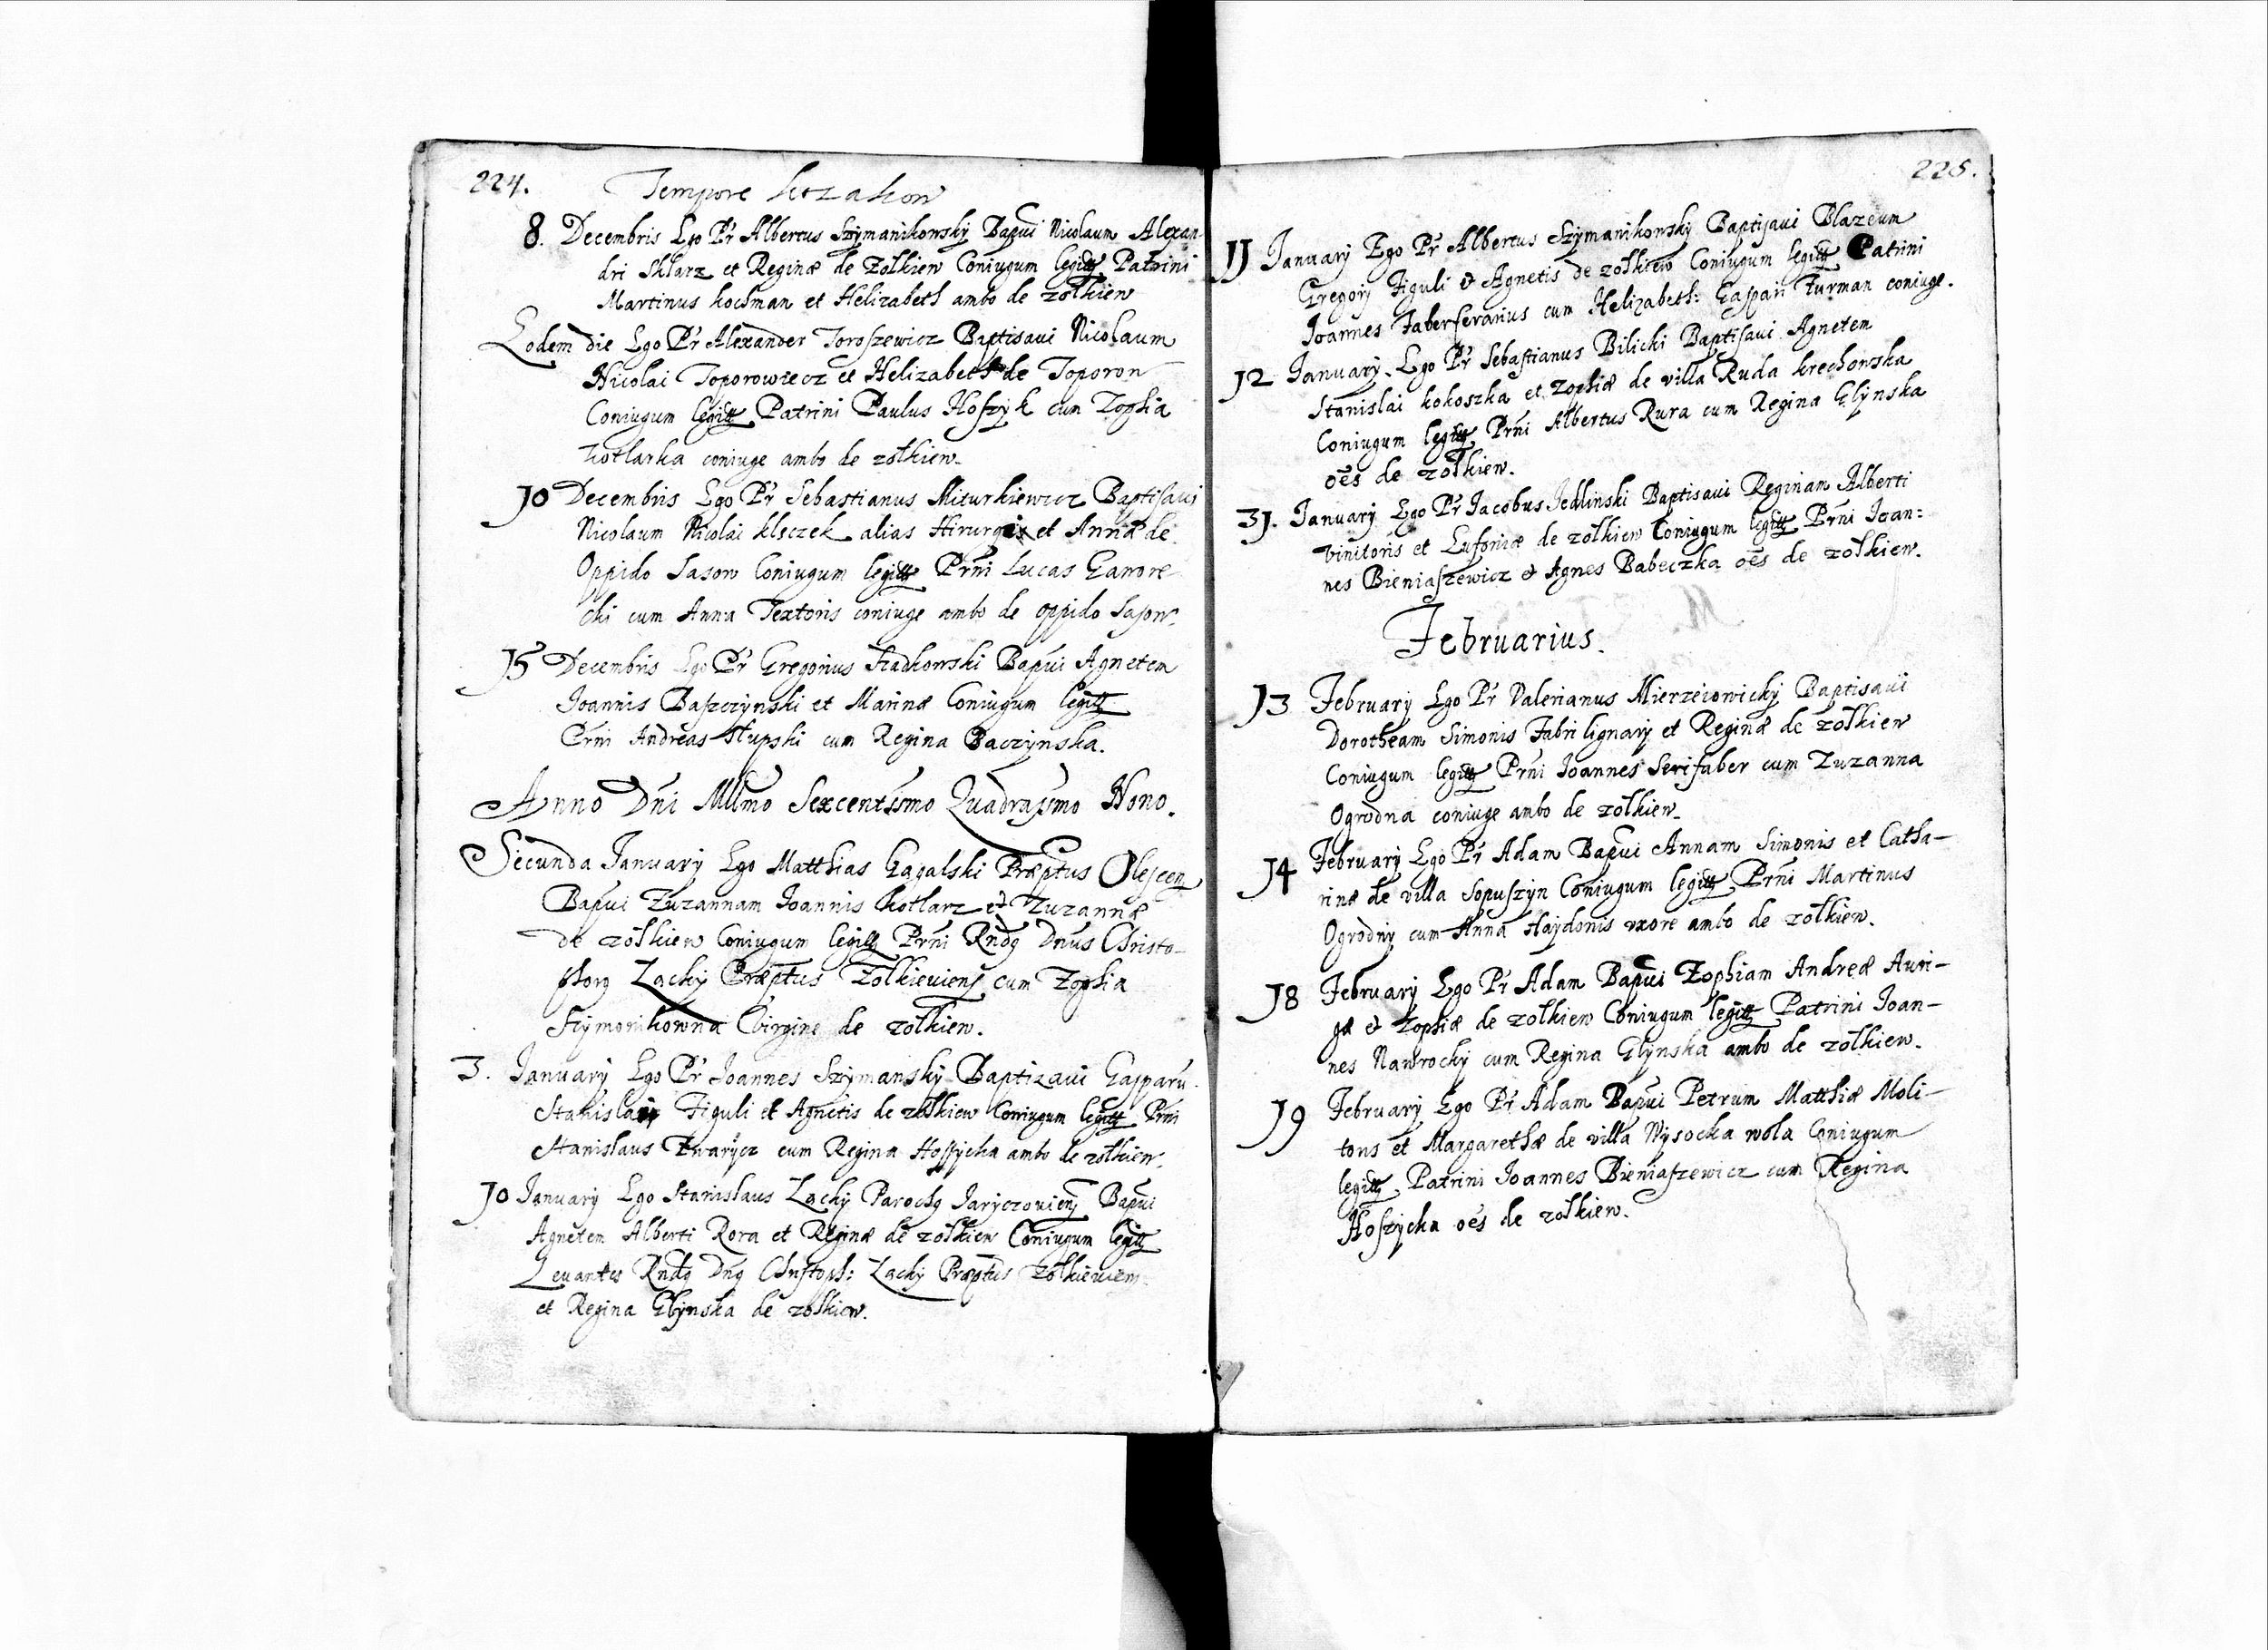 224.
Tempore kozakow
8. Decembris Ego Pr Albertus Szymanikowsky Bapui Nicolaum Alexan
dri Sklarz et Reginæ de Zolkiew Coniugum legitt Patrini
Martinus kochman et Helizabeth ambo de zolkiew
Eodem die Ego Pr Alexander Toroszewicz Baptisaui Nicolaum
Nicolai Toporowiecz et Helizabeth de Toporow
Coniugum legitt Patrini Paulus Hoszyk cum Zophia
kotlarka coniuge ambo de zolkiew.
10 Decembris Ego Pr Sebastianus Miturkiewicz Baptisaui
Nicolaum Nicolai kleczek alias et Annæ de
Oppido Sasow Coniugum legitt Prni Lucas Gawore
cki cum Anna Textoris coniuge ambo de oppido Sasow.
15 Decembris Ego Pr Gregorius Fradkowski Bapui Agnetem
Joannis Baszczynski et Marinæ Coniugum legitt
Prni Andreas Słupski cum Regina Baczynska.
Anno Dni Millmo Sexcentssmo Quadragsmo Nono.
Secunda January Ego Matthias Gagalski Præptus Olescen
Bapui Zuzannam Joannis kotlarz et Zuzannæ
de zolkiew Coniugum legitt Prni Rndg Dnus Christo-
phorg Zacky Præptus Zolkieviens cum Zophia
Szymonikowna Virgine de zolkiew.
3. January Ego Pr Joannes Szymansky Baptizaui Gasparu
Stanislai Figuli et Agnetis de zolkiew Coniugum legitt Prni
Stanislaus Twarycz cum Regina Hoszycka ambo de zolkiew.
10 January Ego Stanislaus Zacky Parochg Jaryczouiens Bapui
Agnetem Alberti Rora et Reginæ de zolkiew Coniugum legitt
Leuantes Rndg Dng Christoph: Zacky Præptus zolkieuiens
et Regina Glynska de zolkiew.
225.
11 January Ego Pr Albertus Szymanikowsky Baptisaui Blazeum
Gregorij Figuli & Agnetis de zolkiew Coniugum legitt Patrini
Joannes Faberserarius cum Helizabeth: Gaspari Furman coniuge.
12 January. Ego Pr Sebastianus Bilicki Baptisaui Agnetem
Stanislai kokoszka et Zophiæ de villa Ruda krechowska
Coniugum legitt Prni Albertus Rura cum Regina Glynska
oes de zolkiew.
31. January Ego Pr Jacobus Jedlinski Baptisaui Reginam Alberti
vinitoris et Eufoniæ de zolkiew Coniugum legitt Prni Joan:
nes Bieniaszewicz & Agnes Babeczka oes de zolkiew.
Februarius.
13 February Ego Pr Valerianus Mierzeiowicky Baptisaui
Dorotheam Simonis Fabri lignarij et Reginæ de zolkiew
Coniugum legitt Prni Joannes Serifaber cum Zuzanna
Ogrodna coniuge ambo de zolkiew.
14 February Ego Pr Adam Bapui Annam Simonis et Catha-
rinæ de villa Sopuszyn Coniugum legitt Prni Martinus
Ogrodny cum Anna Haydonis uxore ambo de zolkiew.
18 February Ego Pr Adam Bapui Zophiam Andreæ Auri-
gæ & Zophiæ de zolkiew Coniugum legitt Patrini Joan-
nes Nawrocky cum Regina Glynska ambo de zolkiew.
19 February Ego Pr Adam Bapui Petrum Matthiæ Moli-
toris et Margarethæ de villa Wysocka wola Coniugum
legitt Patrini Joannes Bieniaszewicz cum Regina
Hoszycka oes de zolkiew.